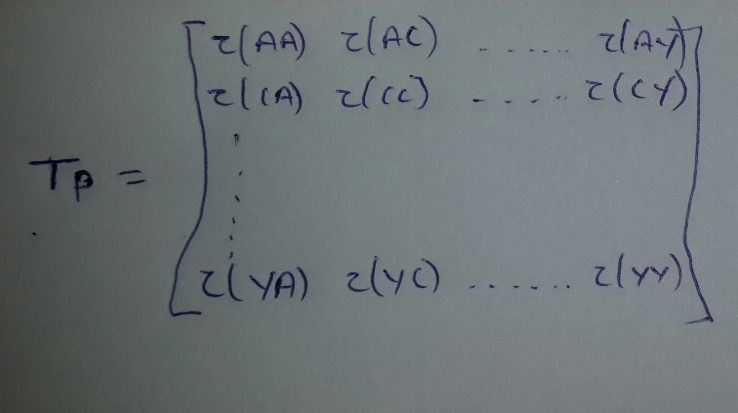 τ(AA) τ(AC) ...... τ(AY)
τ(CA) τ(CC) ...... τ(CY)
Tβ =
τ(YA) τ(YC) ...... τ(YY)